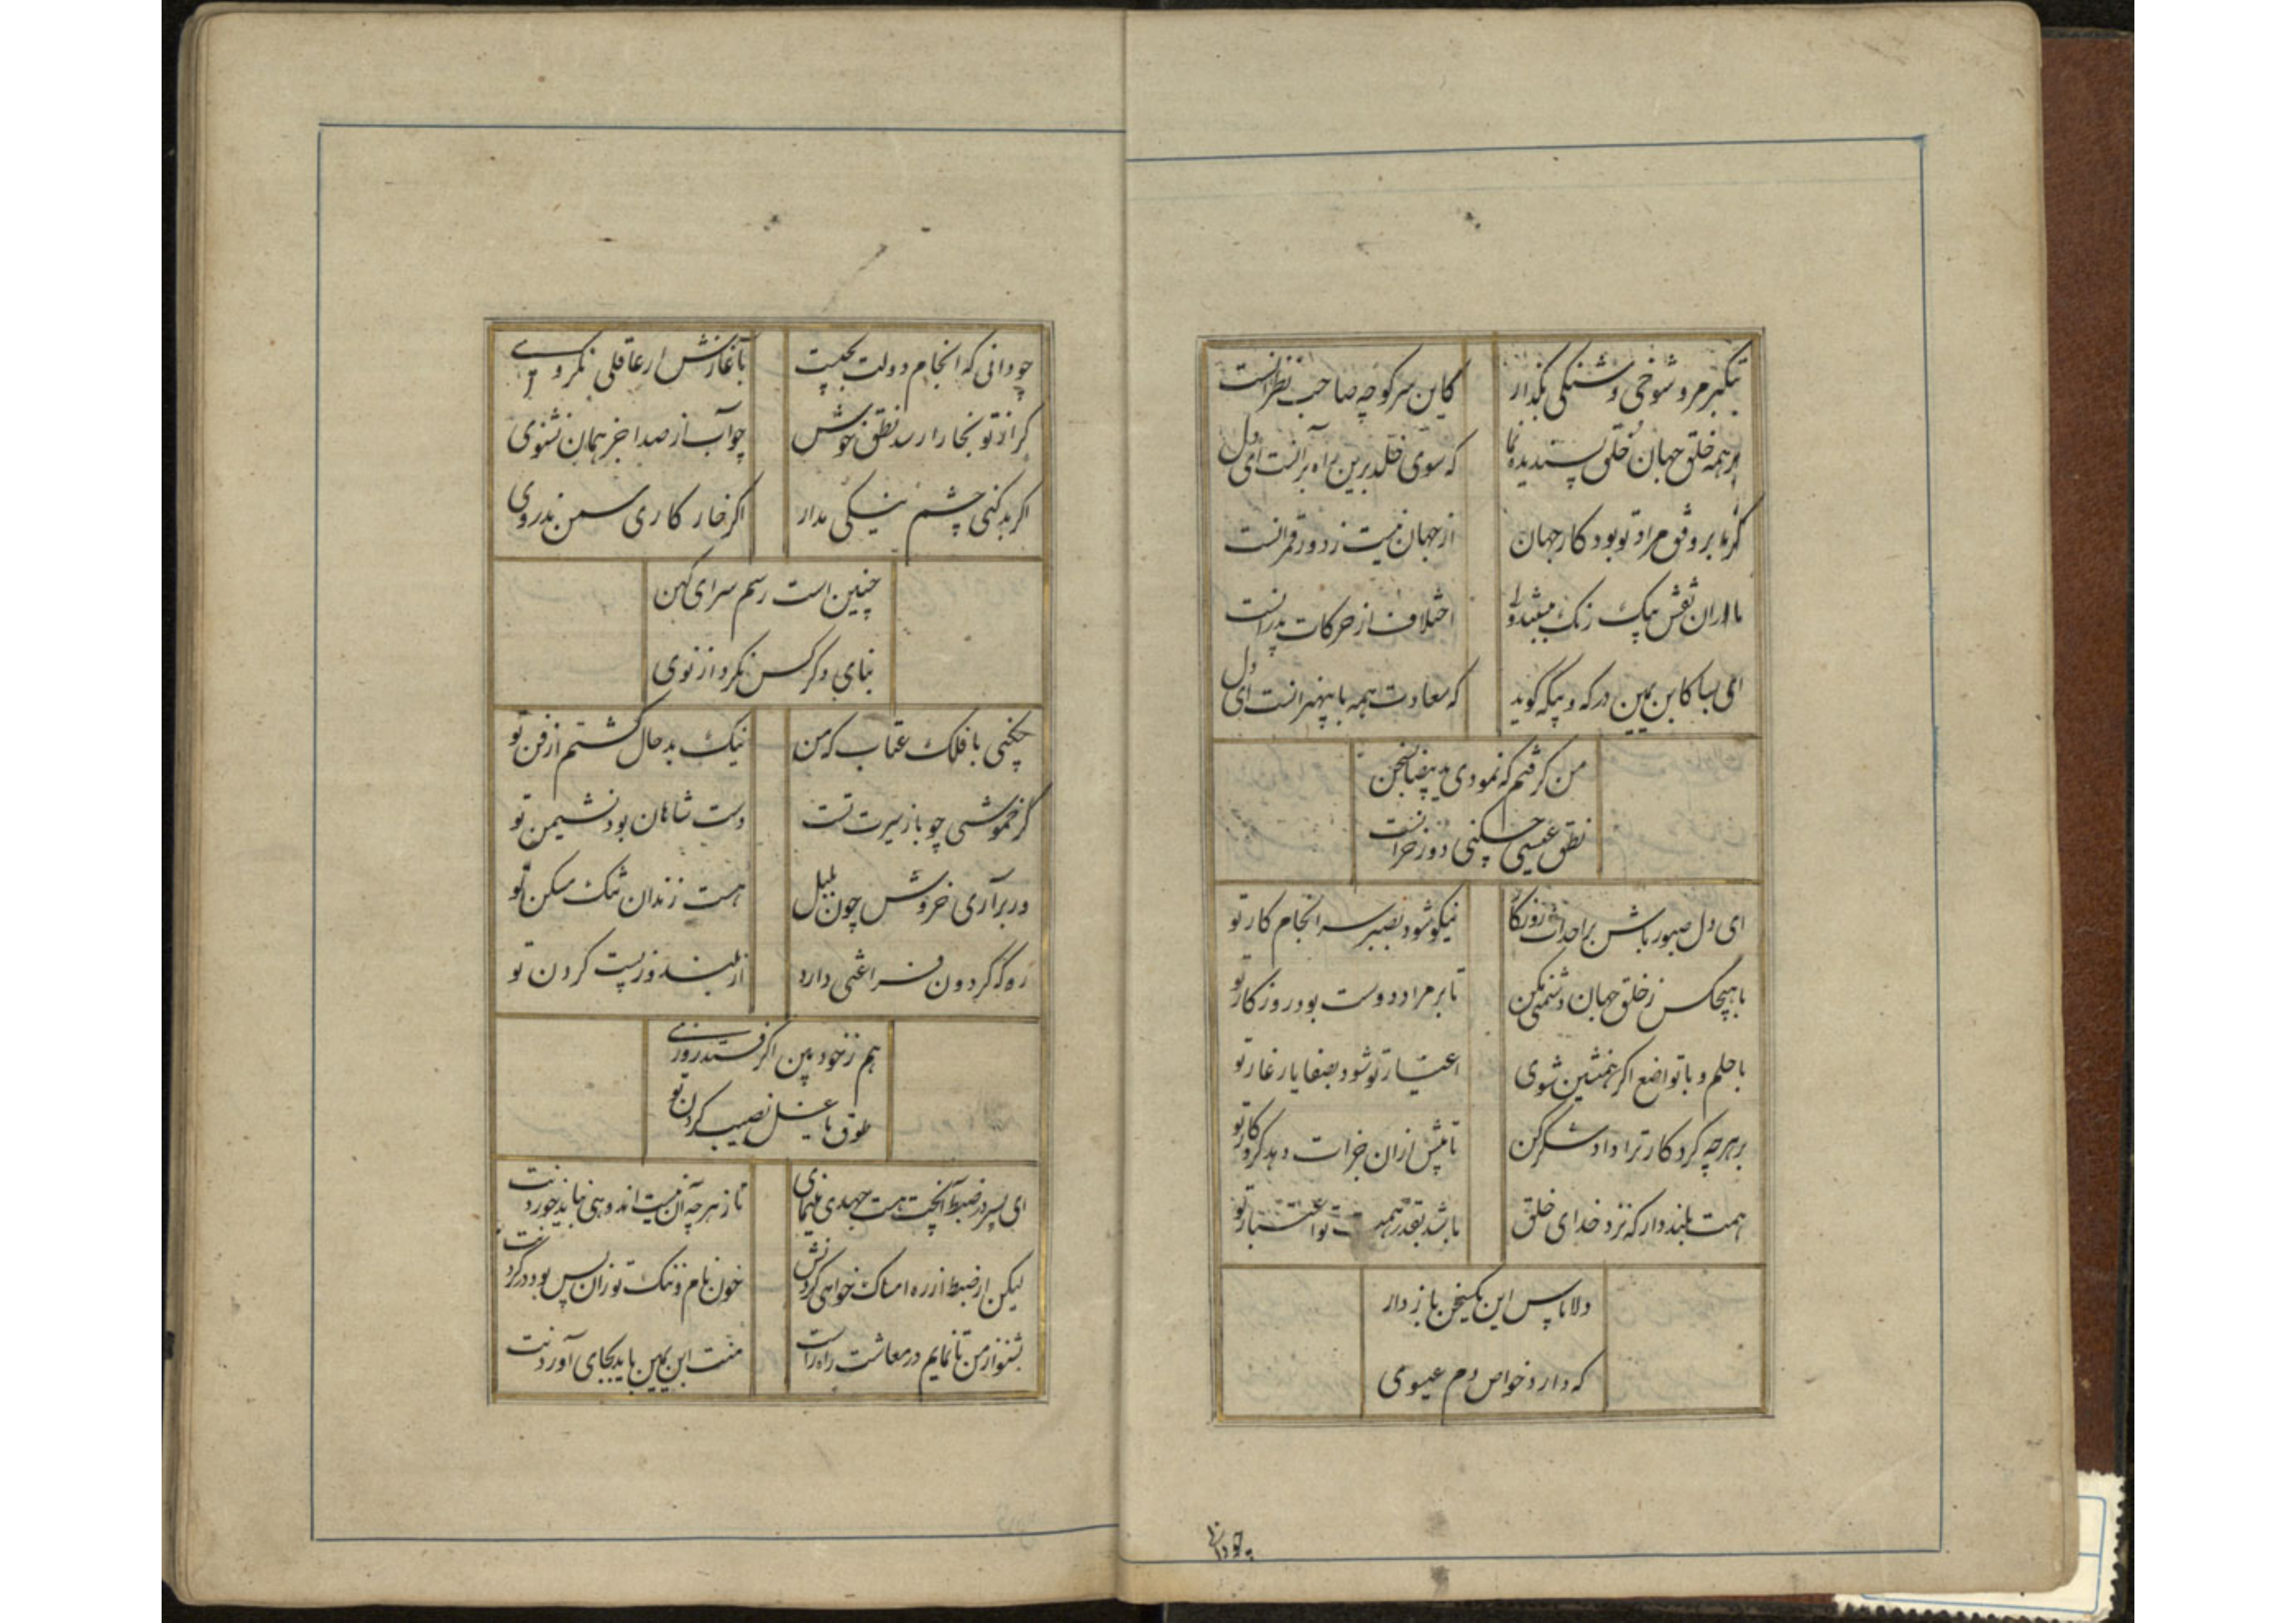 بتکبر مرو شوخی و شنگی بگذار کاین سر کوچه صاحب نظرانست
بر همه خلق جهان خُلق پسندیده نما که سوی خلد برین راه برانست ای دل
گر نه بر وفق مراد تو بود کار جهان از جهان نیست ز دور قمرانست
مادران نقش بیک رنگ اختلاف از حرکات پدرانست
ای بسا کابن یمین در که و بیگه گوید که سعادت همه با بیهنرانست ای دل
من گرفتم که نمودی ید بیضا بسخن
نطق عیسی چکنی دور خرانست
ای دل صبور باش بر احداث روزگار نیکو شود بصبر سرانجام کار تو
با هیچکس ز خلق جهان دشمنی مکن تا بر مراد دوست بود روزگار تو
با حلم و با تواضع اگر همنشین شوی اغیار تو شود بصفا یار غار تو
بر هرچه کردکار ترا داد شکر کن تا بیش ازان جزات دهد کردکار تو
همت بلند دار که نزد خدای خلق باشد بقدر همت تو اعتبار تو
دلا پاس این یکسخن باز دار
که دارد خواص دم عیسوی
چو دانی
چو دانی که انجام دولت بچیست بآغازش ار عاقلی نگروی
گر از تو بخارا رسد نطق خوش جواب از صدا جز همان نشنوی
اگر بد کنی چشم نیکی مدار اگر خار کاری سمن ندروی
چنین است رسم سرای کهن
بنای دگر کس نکرد از نوی
چکنی با فلک عتاب که من نیک بد حال گشتم از فن تو
گر خموشی چو باز سیرت تست دست شاهان بود نشیمن تو
ور برآری خروش چون بلبل هست زندان تنگ مسکن تو
رو که گردون فراغتی دارد از بلند و ز پست کردن تو
هم ز خود بین اگر فتد روزی
طوق یا غل نصیب گردن تو
ای پسر در ضبط آنچت هست جهدی مینمای تا ز هرچه آن نیست اندوهی نباید خوردنت
لیکن ار ضبط از ره امساک خواهی کردنش خون نام و ننگ تو زان پس بود در گردنت
بشنو از من تا نمایم در معاشت راه راست منت ابن یمین باید بجای آوردنت